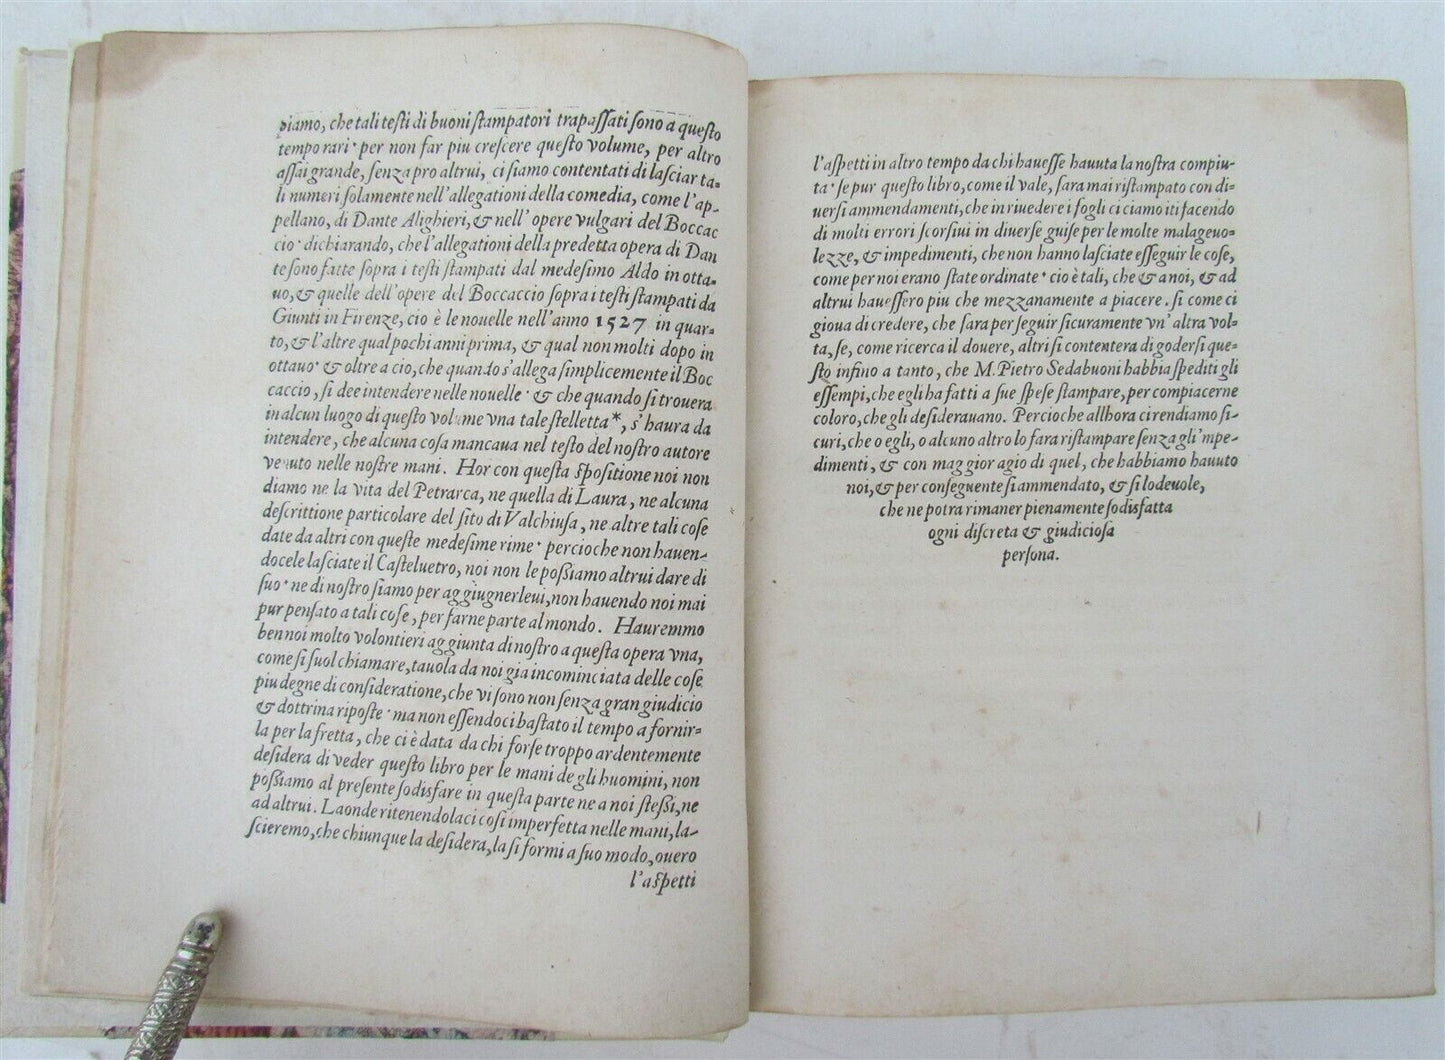 piamo, che tali testi di buoni stampatori trapassati sono a questo
tempo rari· per non far piu crescere questo volume, per altro
assai grande, senza pro altrui, ci siamo contentati di lasciar ta-
li numeri solamente nell'allegationi della comedia, come l'ap-
pellano, di Dante Alighieri, & nell'opere vulgari del Boccac
cio· dichiarando, che l'allegationi della predetta opera di Dan
te sono fatte sopra i testi stampati dal medesimo Aldo in otta-
uo, & quelle dell'opere del Boccaccio sopra i testi stampati da
Giunti in Firenze, cio è le nouelle nell'anno 1527 in quar-
to, & l'altre qual pochi anni prima, & qual non molti dopo in
ottauo· & oltre a cio, che quando s'allega simplicemente il Boc
caccio, si dee intendere nelle nouelle· & che quando si trouera
in alcun luogo di questo volume vna tale stelletta*, s'haura da
intendere, che alcuna cosa mancaua nel testo del nostro autore
venuto nelle nostre mani. Hor con questa spositione noi non
diamo ne la vita del Petrarca, ne quella di Laura, ne alcuna
descrittione particolare del sito di Valchiusa, ne altre tali cose
date da altri con queste medesime rime· percioche non hauen-
docele lasciate il Casteluetro, noi non le possiamo altrui dare di
suo· ne di nostro siamo per aggiugnerleui, non hauendo noi mai
pur pensato a tali cose, per farne parte al mondo. Hauremmo
ben noi molto volontieri aggiunta di nostro a questa opera vna,
come si suol chiamare, tauola da noi gia incominciata delle cose
piu degne di consideratione, che vi sono non senza gran giudicio
& dottrina riposte· ma non essendoci bastato il tempo a fornir-
la per la fretta, che ci è data da chi forse troppo ardentemente
desidera di veder questo libro per le mani de gli huomini, non
possiamo al presente sodisfare in questa parte ne a noi stessi, ne
ad altrui. Laonde ritenendolaci cosi imperfetta nelle mani, la-
scieremo, che chiunque la desidera, la si formi a suo modo, ouero
l'aspetti
l'aspetti in altro tempo da chi hauesse hauuta la nostra compiu-
ta· se pur questo libro, come il vale, sara mai ristampato con di-
uersi ammendamenti, che in riuedere i fogli ci ciamo iti facendo
di molti errori scorsiui in diuerse guise per le molte malageuo-
lezze, & impedimenti, che non hanno lasciate esseguir le cose,
come per noi erano state ordinate· cio è tali, che & a noi, & ad
altrui hauessero piu che mezzanamente a piacere. si come ci
gioua di credere, che sara per seguir sicuramente vn'altra vol-
ta, se, come ricerca il douere, altri si contentera di godersi que-
sto infino a tanto, che M. Pietro Sedabuoni habbia spediti gli
essempi, che egli ha fatti a sue spese stampare, per compiacerne
coloro, che gli desiderauano. Percioche allhora ci rendiamo si-
curi, che o egli, o alcuno altro lo fara ristampare senza gl'mpe-
dimenti, & con maggior agio di quel, che habbiamo hauuto
noi, & per conseguente si ammendato, & si lodeuole,
che ne potra rimaner pienamente sodisfatta
ogni discreta & giudiciosa
persona.